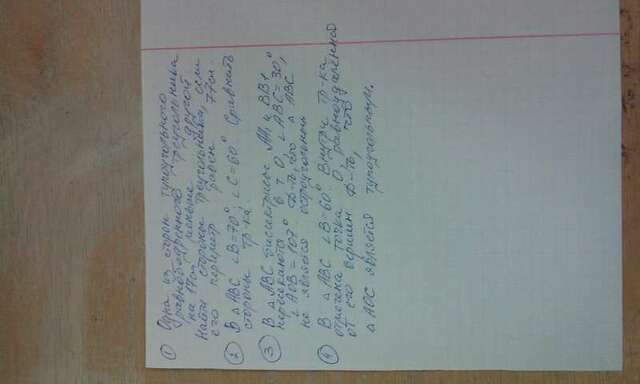 ① Одна из сторон тупоугольного
равнобедренного треугольника
на 17см меньше другой
Найти стороны треугольника, если
его периметр равен 77см.
② В △ ABC ∠B=70°, ∠C=60° Сравнить
стороны тр-ка.
③ В △ ABC биссектрисы AA1 и BB1
пересекаются в т О, ∠ABC=30°,
∠AOB=107° Д-ть, что △ ABC
не является остроугольным
④ В △ ABC ∠B=60° Внутри тр-ка
отмечена точка О, равноудаленная
от его вершин Д-ть, что
△ AOC является тупоугольным.